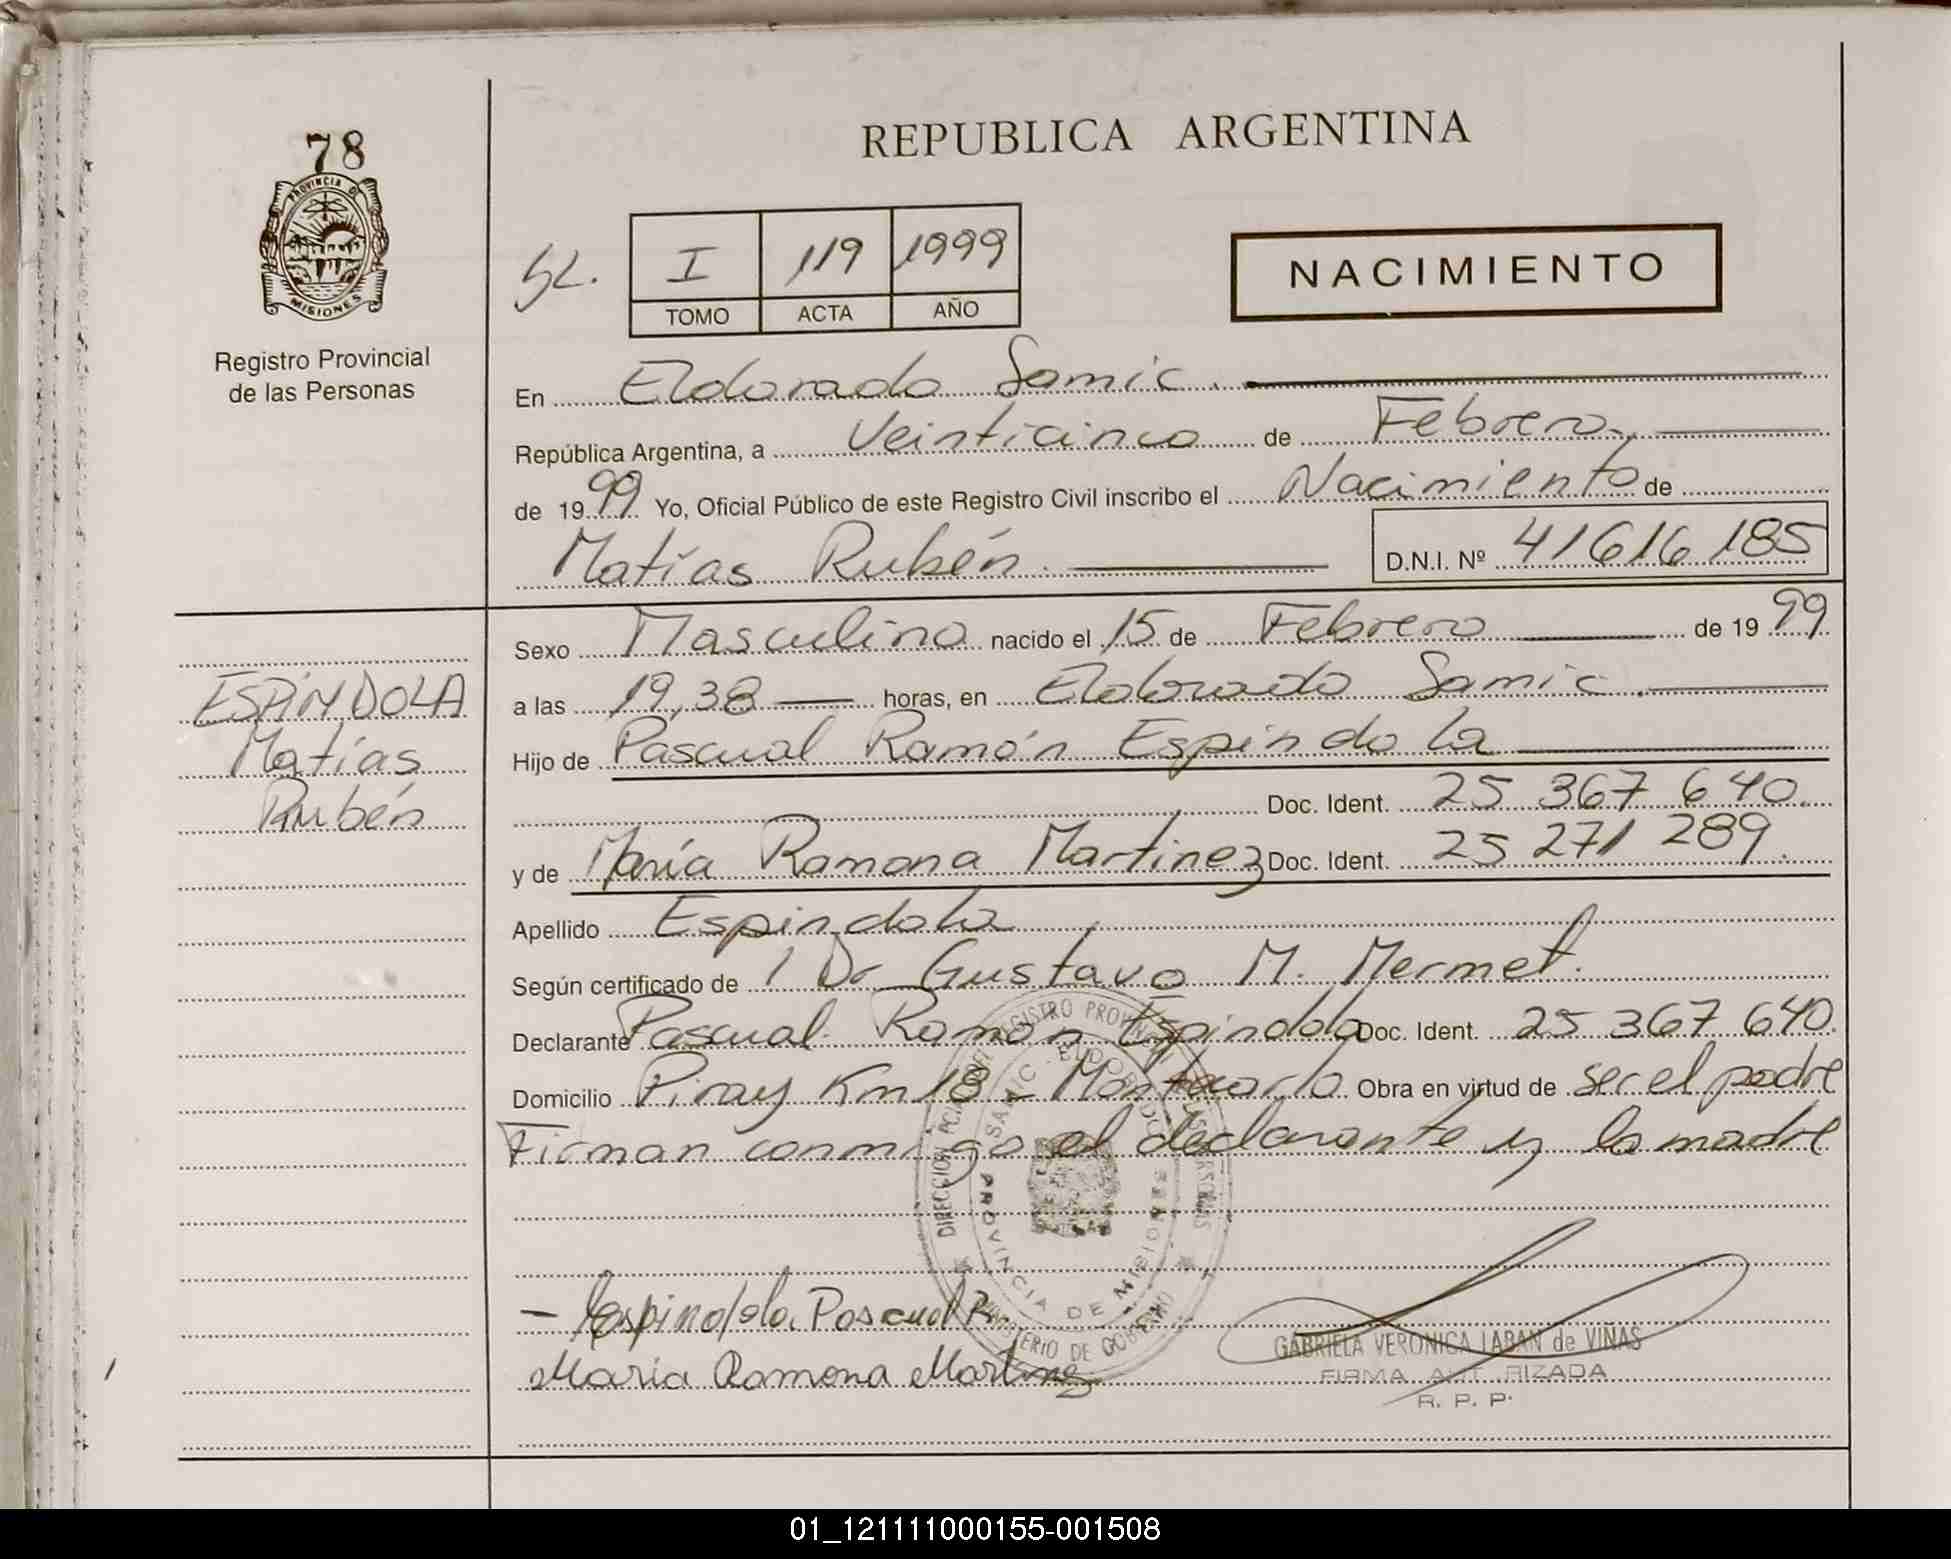 78
PROVINCIA DE
MISIONES
Registro Provincial
de las Personas
REPUBLICA ARGENTINA
SL. I 119 1999
TOMO ACTA AÑO
NACIMIENTO
En Eldorado Samic.
República Argentina, a Veinticinco de Febrero,
de 1999 Yo, Oficial Público de este Registro Civil inscribo el Nacimiento de
Matías Rubén. D.N.I. Nº 41616185
Sexo Masculino nacido el 15 de Febrero de 1999
a las 19,38 horas, en Eldorado Samic.
Hijo de Pascual Ramón Espíndola
Doc. Ident. 25 367 640.
y de María Ramona Martinez Doc. Ident. 25 271 289.
Apellido Espíndola
Según certificado de / Dr Gustavo M. Mermet.
Declarante Pascual Ramón Espíndola Doc. Ident. 25 367 640.
Domicilio Piray Km 18 - Montecarlo. Obra en virtud de ser el padre
Firman conmigo el declarante y la madre
ESPÍNDOLA
Matías
Rubén
- Espindola. Pascual R.
Maria Ramona Martinez
GABRIELA VERONICA LABAN de VIÑAS
FIRMA AUT RIZADA
R. P. P.
SAMIC - ELDORADO
PROVINCIA DE MISIONES
MINISTERIO DE GOBIERNO
01_121111000155-001508